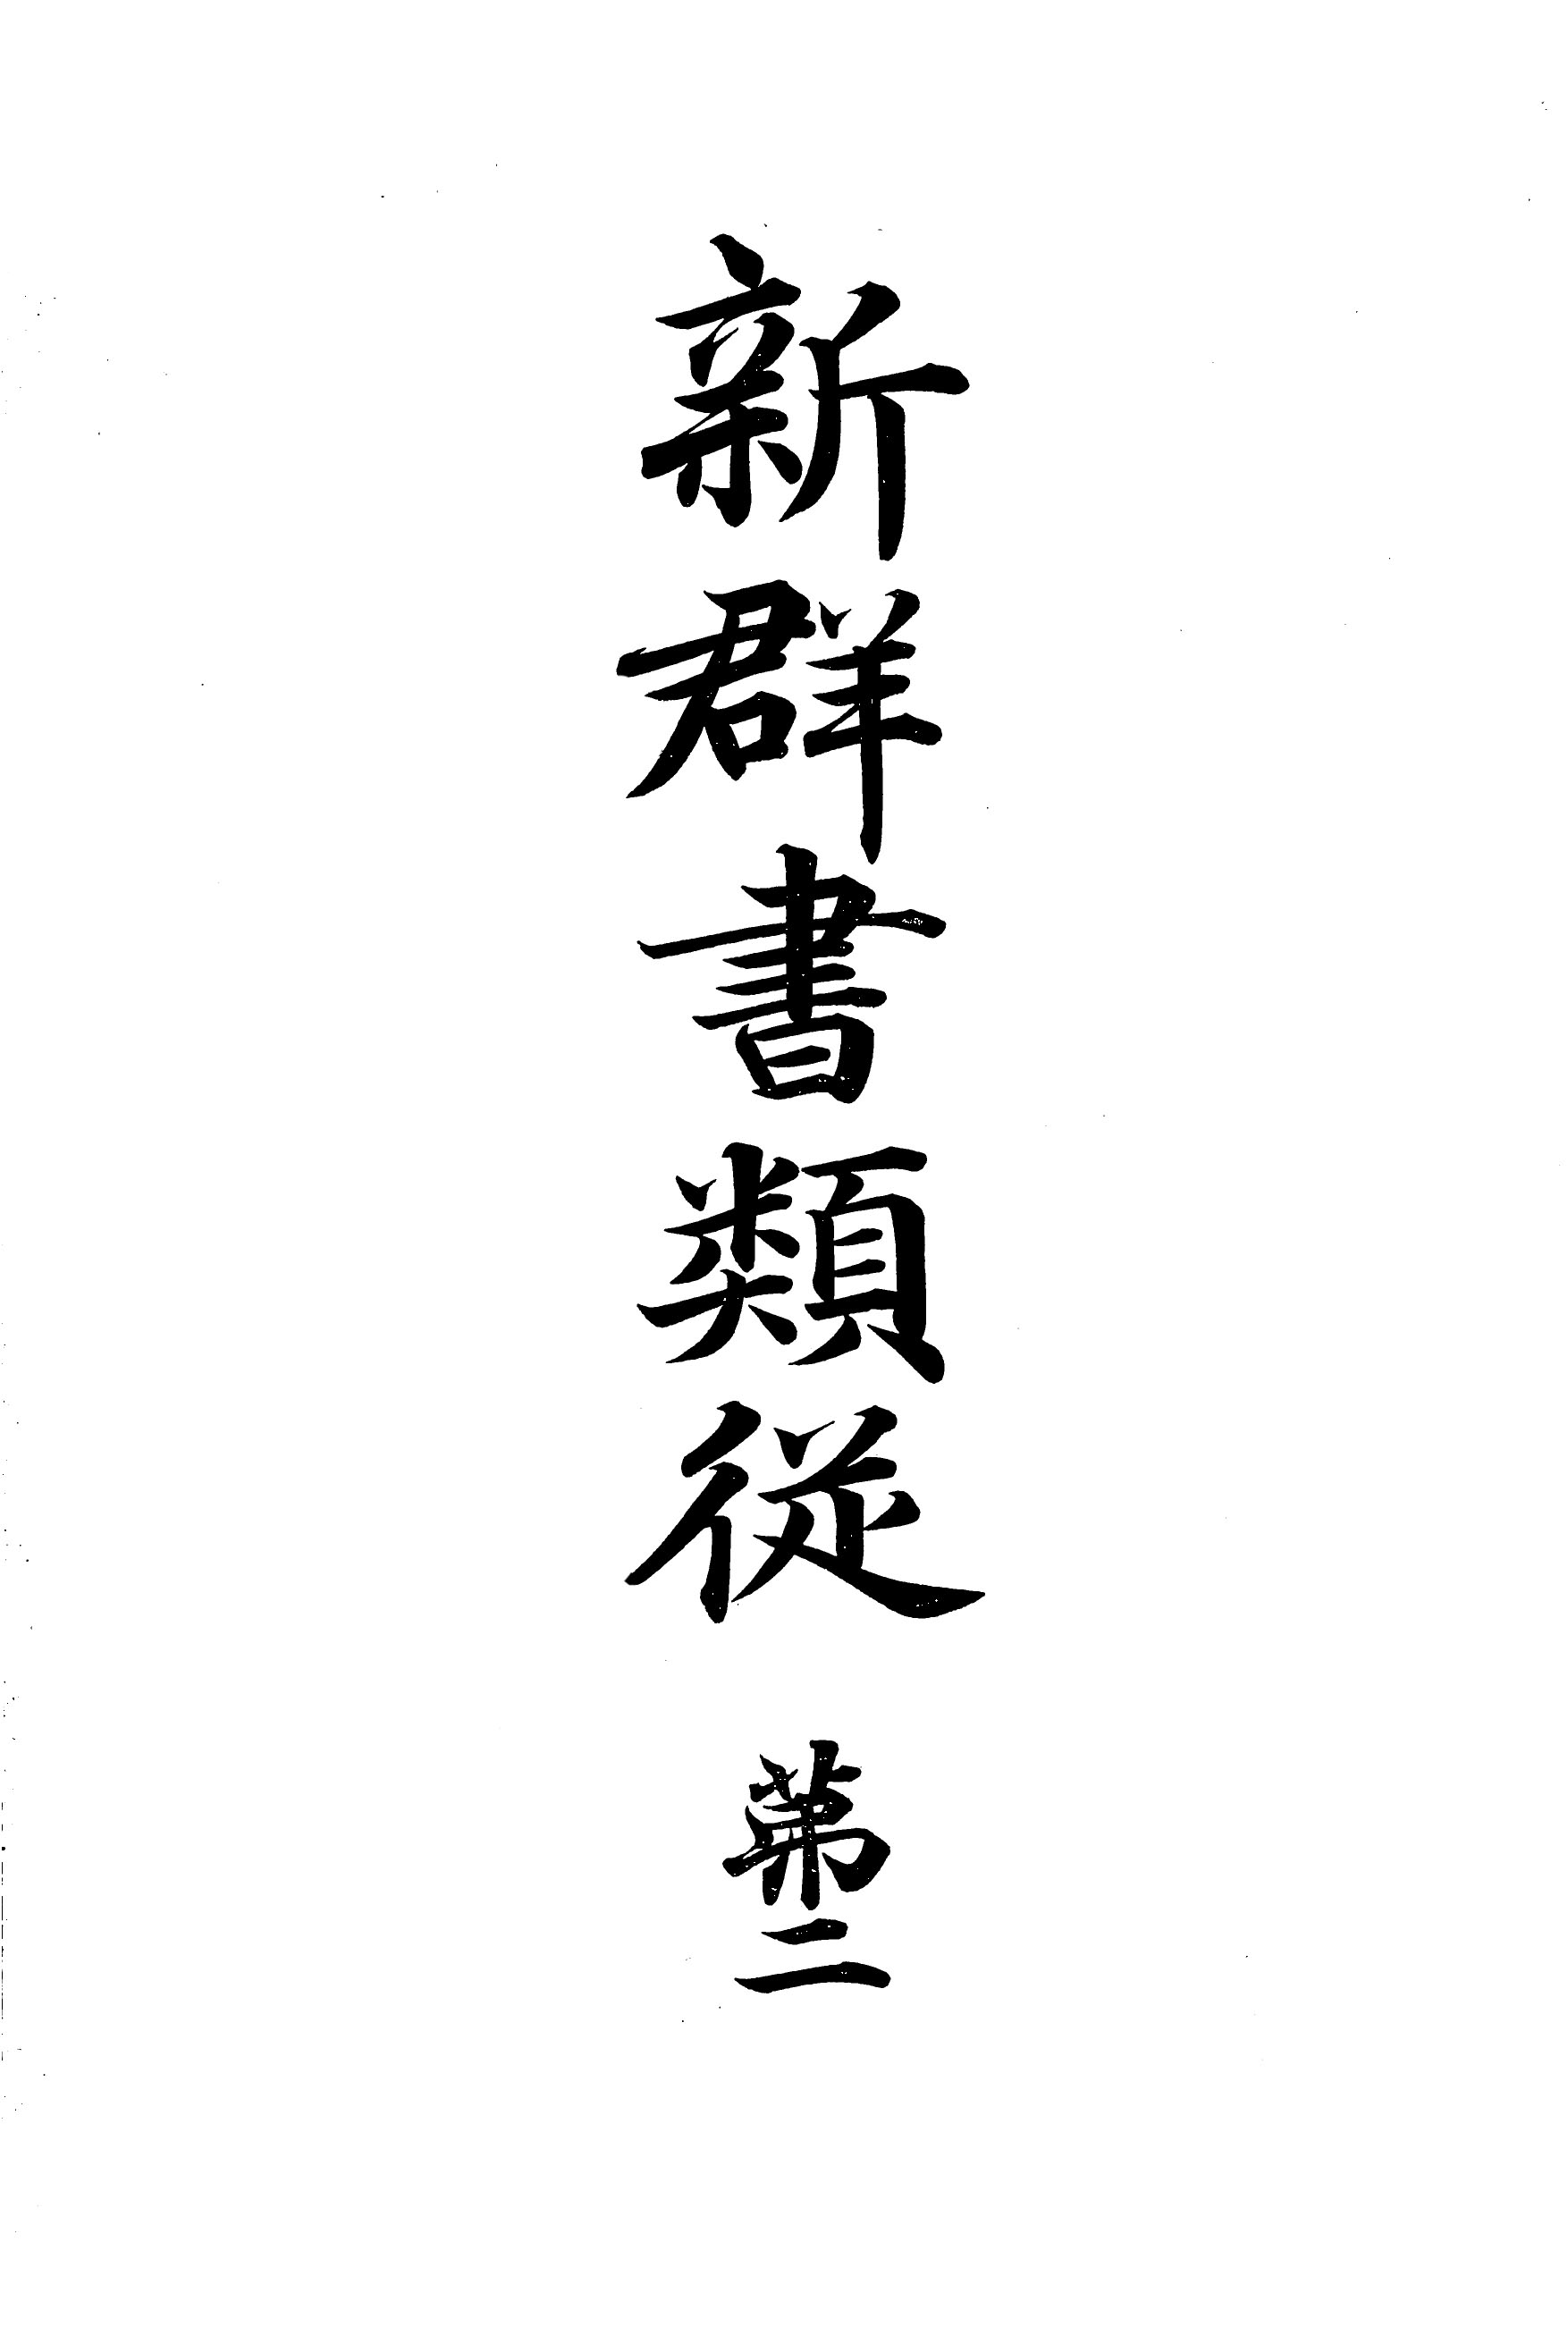 新群書類従 第二